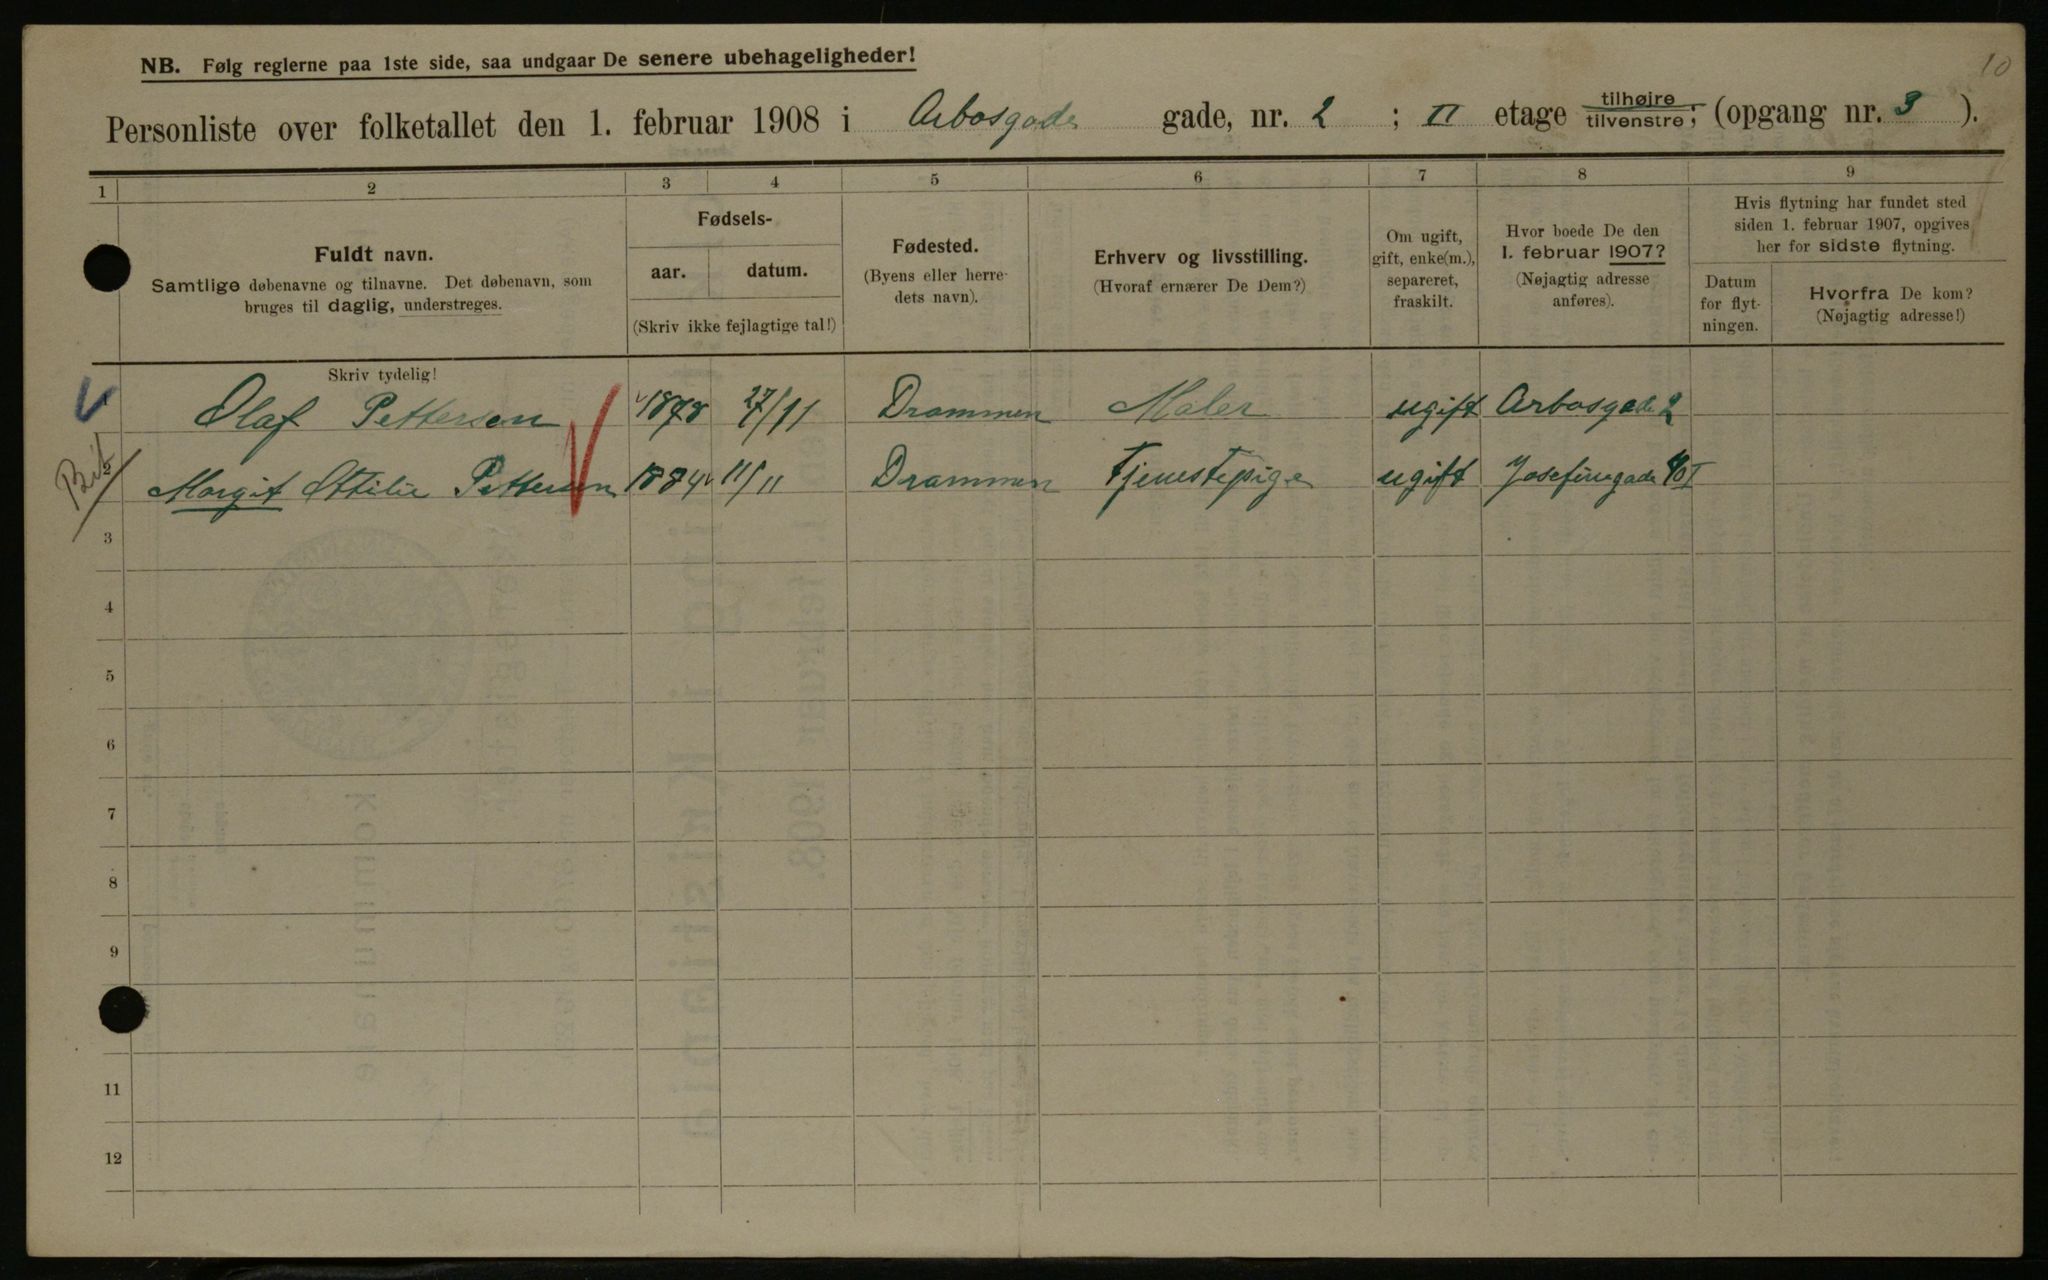 10
NB. Følg reglerne paa 1ste side, saa undgaar De senere ubehageligheder!
Personliste over folketallet den 1. februar 1908 i Arbosgade gade, nr. 2 ; II etage tilhøjre tilvenstre; (opgang nr. 3 ).
1 2 3 4 5 6 7 8 9
Fuldt navn.
Samtlige døbenavne og tilnavne. Det døbenavn, som
bruges til daglig, understreges.
Fødsels-
aar. datum.
(Skriv ikke fejlagtige tal!)
Fødested.
(Byens eller herre-
dets navn).
Erhverv og livsstilling.
(Hvoraf ernærer De Dem?)
Om ugift,
gift, enke(m.),
separeret,
fraskilt.
Hvor boede De den
1. februar 1907?
(Nøjagtig adresse
anføres).
Hvis flytning har fundet sted
siden 1. februar 1907, opgives
her for sidste flytning.
Datum
for flyt-
ningen.
Hvorfra De kom?
(Nøjagtig adresse!)
Skriv tydelig!
1 Olaf Pettersen 1878 27/11 Drammen Maler ugift Arbosgade 2
2 Margit Ottilie Pettersen 1884 11/11 Drammen Tjenestepige ugift Josefinegade 40 I
3
4
5
6
7
8
9
11
12